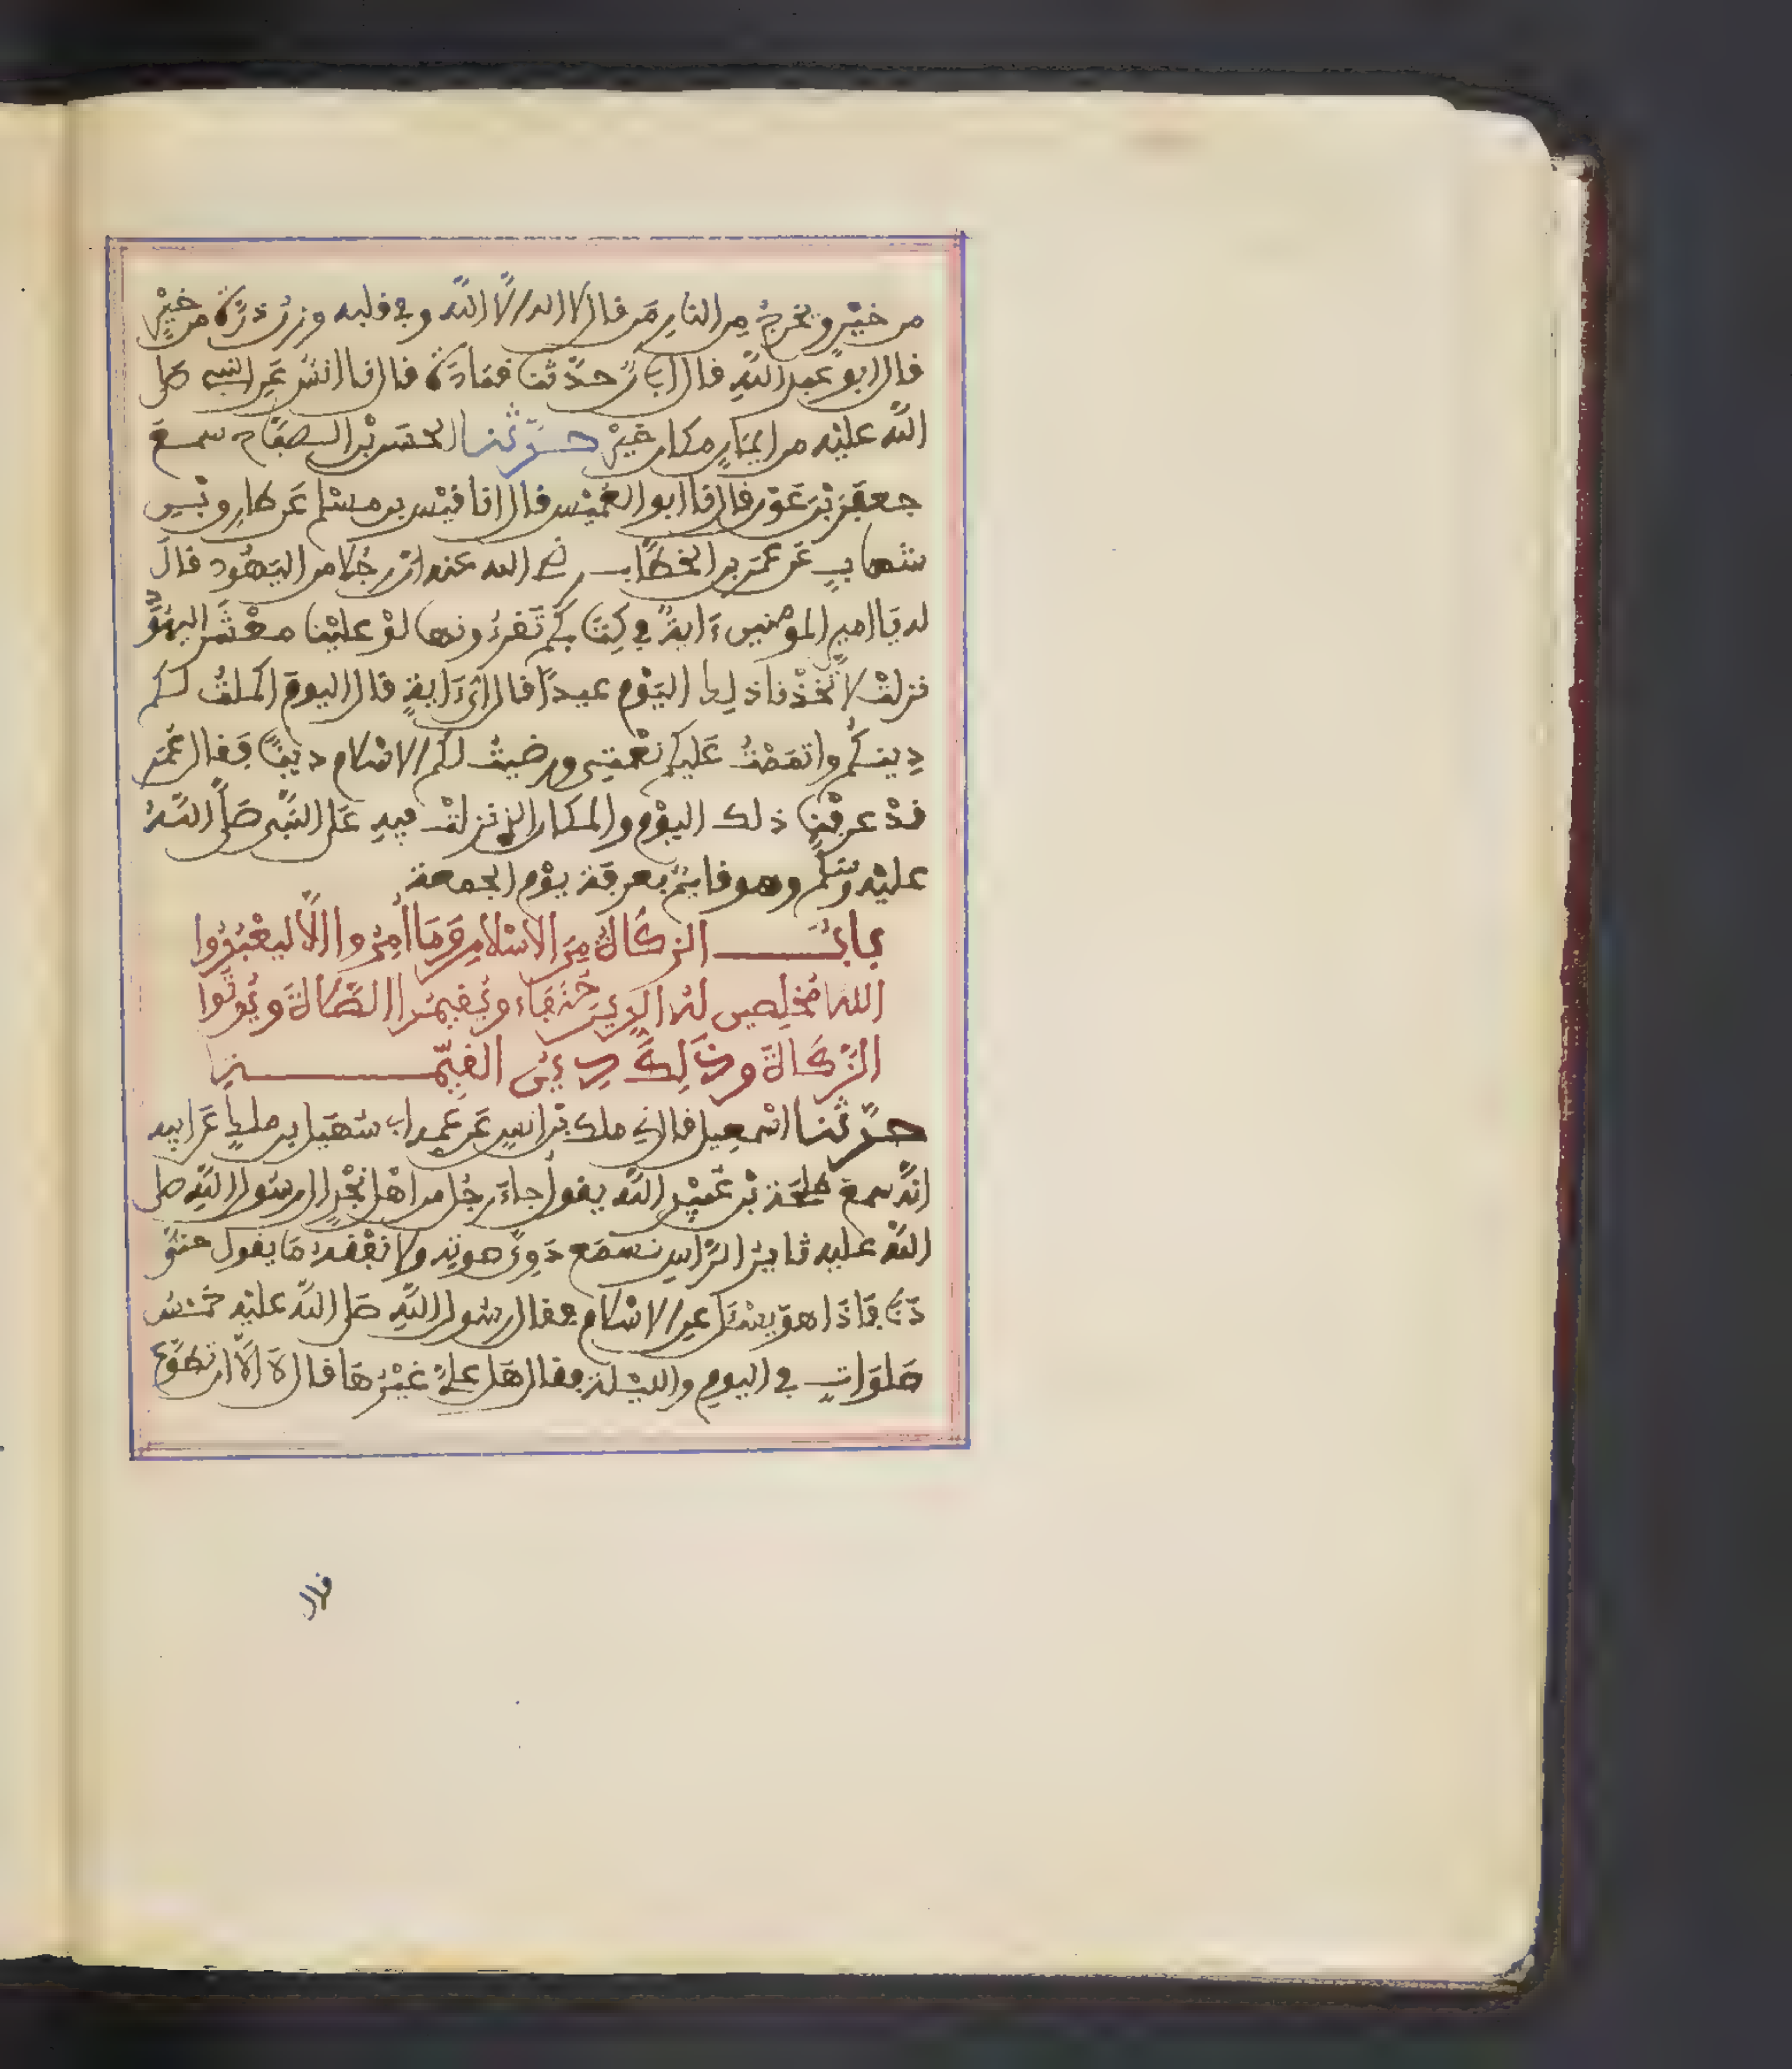 من خيْرٍ ويخرجُ مِن النارِ مَن قال لا اله الَّا اللّٰه وفي قلبه وزنُ ذرّةٍ من خيْرٍ
قال ابو عبد اللّٰهِ قال ابانُ حدّثنا قتادة قال نا انسٌ عَنِ النبي صلى
اللّٰه عليْه من ايمَانٍ مكان خيْرٍ حدّثنا الحسَن بْن الصبّاح سمع
جعفَرَ بْنَ عَوْنٍ قال نا ابو العُمَيْس قال انا قيْس بن مسْلم عَن طارِق بْنِ
شهابٍ عَن عمَر بن الخطّاب رضي الله عنه انّ رجُلا من اليَهُود قالَ
له يَا امير المومنين ءَايةٌ في كِتَابكُم تَقرءُونها لوْ عليْنا معْشَر اليهُو
نزلتْ لاتَّخذْنا ذلك اليَوْم عيدًا قال أيُّ ءَايةٍ قال اليومَ اكملتُ لكم
دِينكُم واتمَمْتُ عَليكم نعْمتِي ورضيتُ لكُم الاسْلام دينًا فقال عُمَر
قدْ عرفْنا ذلك اليوْم والمكان الذي نزلتْ فيهِ عَلى النَّبي صَلَّى اللّٰهُ
عليْه وسَلَّم وهو قايمٌ بعرفة يوْم الجمعة
بابُ الزكَاةُ مِنَ الاسْلامِ وَمَا أُمِرُوا الَّا ليعْبُدُوا
اللّٰه مُخلِصِين لهُ الدِينَ حُنَفَاء ويُقيمُوا الصَّلاةَ ويُوتُوا
الزَّكَاةَ وذَلِكَ دِينُ القيّمَةِ
حدّثنا اسْمعِيل قال ني ملك بْن انسٍ عَن عَمِه ابي سُهَيل بن ملكٍ عَن ابيه
انّهُ سمعَ طلحَة بْن عُبَيْدِ اللّٰه يقول جاءَ رجُل من اهْل نجْدٍ الى رسُول اللّٰهِ صلى
اللّٰه عليه ثايرُ الرّاسِ نسمَع دَوِيّ صوتِه ولا نفْقهُ مَا يقول حتّى
دَنَا فَاذَا هوَ يسْئَل عنِ الاسْلام فقال رسُول اللّٰهِ صَلى اللّٰه عليْه خمْسُ
صَلوَاتٍ في اليوم والليْلة فقال هَل عليّ غيْرُهَا قال لا الّا ان تطَوّعَ
قال